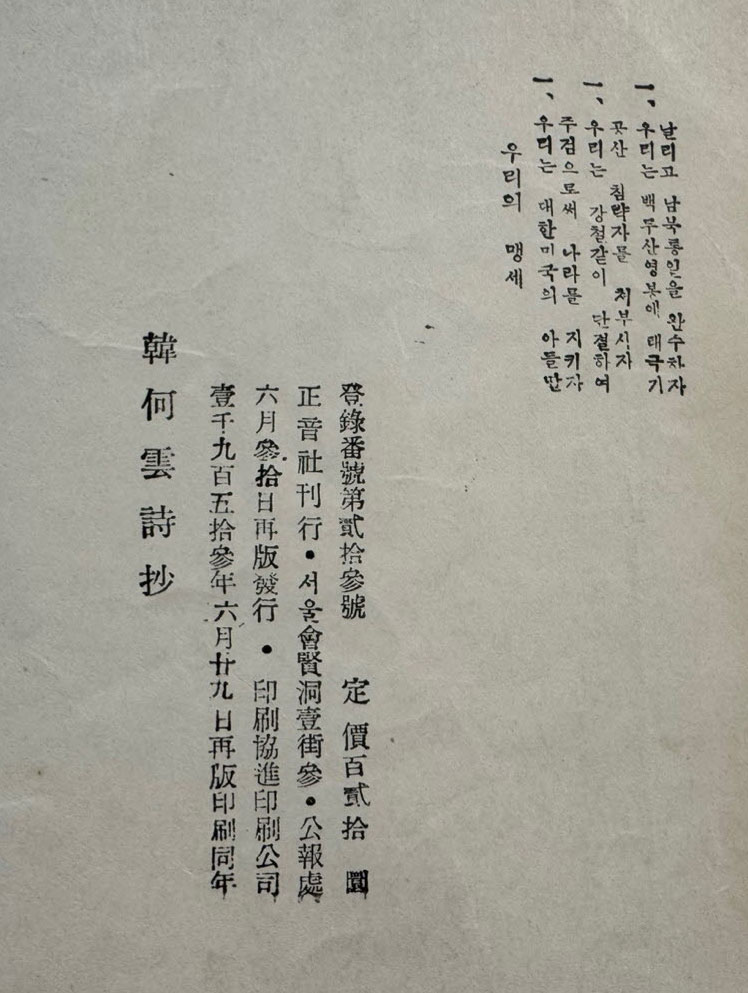 우리의 맹세
一、우리는 대한민국의 아들딸
주검으로써 나라를 지키자
一、우리는 강철같이 단결하여
공산 침략자를 처부시자
一、우리는 백두산영봉에 태극기
날리고 남북통일을 완수하자
韓何雲詩抄
壹千九百五拾參年六月廿九日再版印刷同年
六月參拾日再版發行 • 印刷協進印刷公司
正音社刊行 • 서울會賢洞壹街參 • 公報處
登錄番號第貳拾參號 定價百貳拾圜